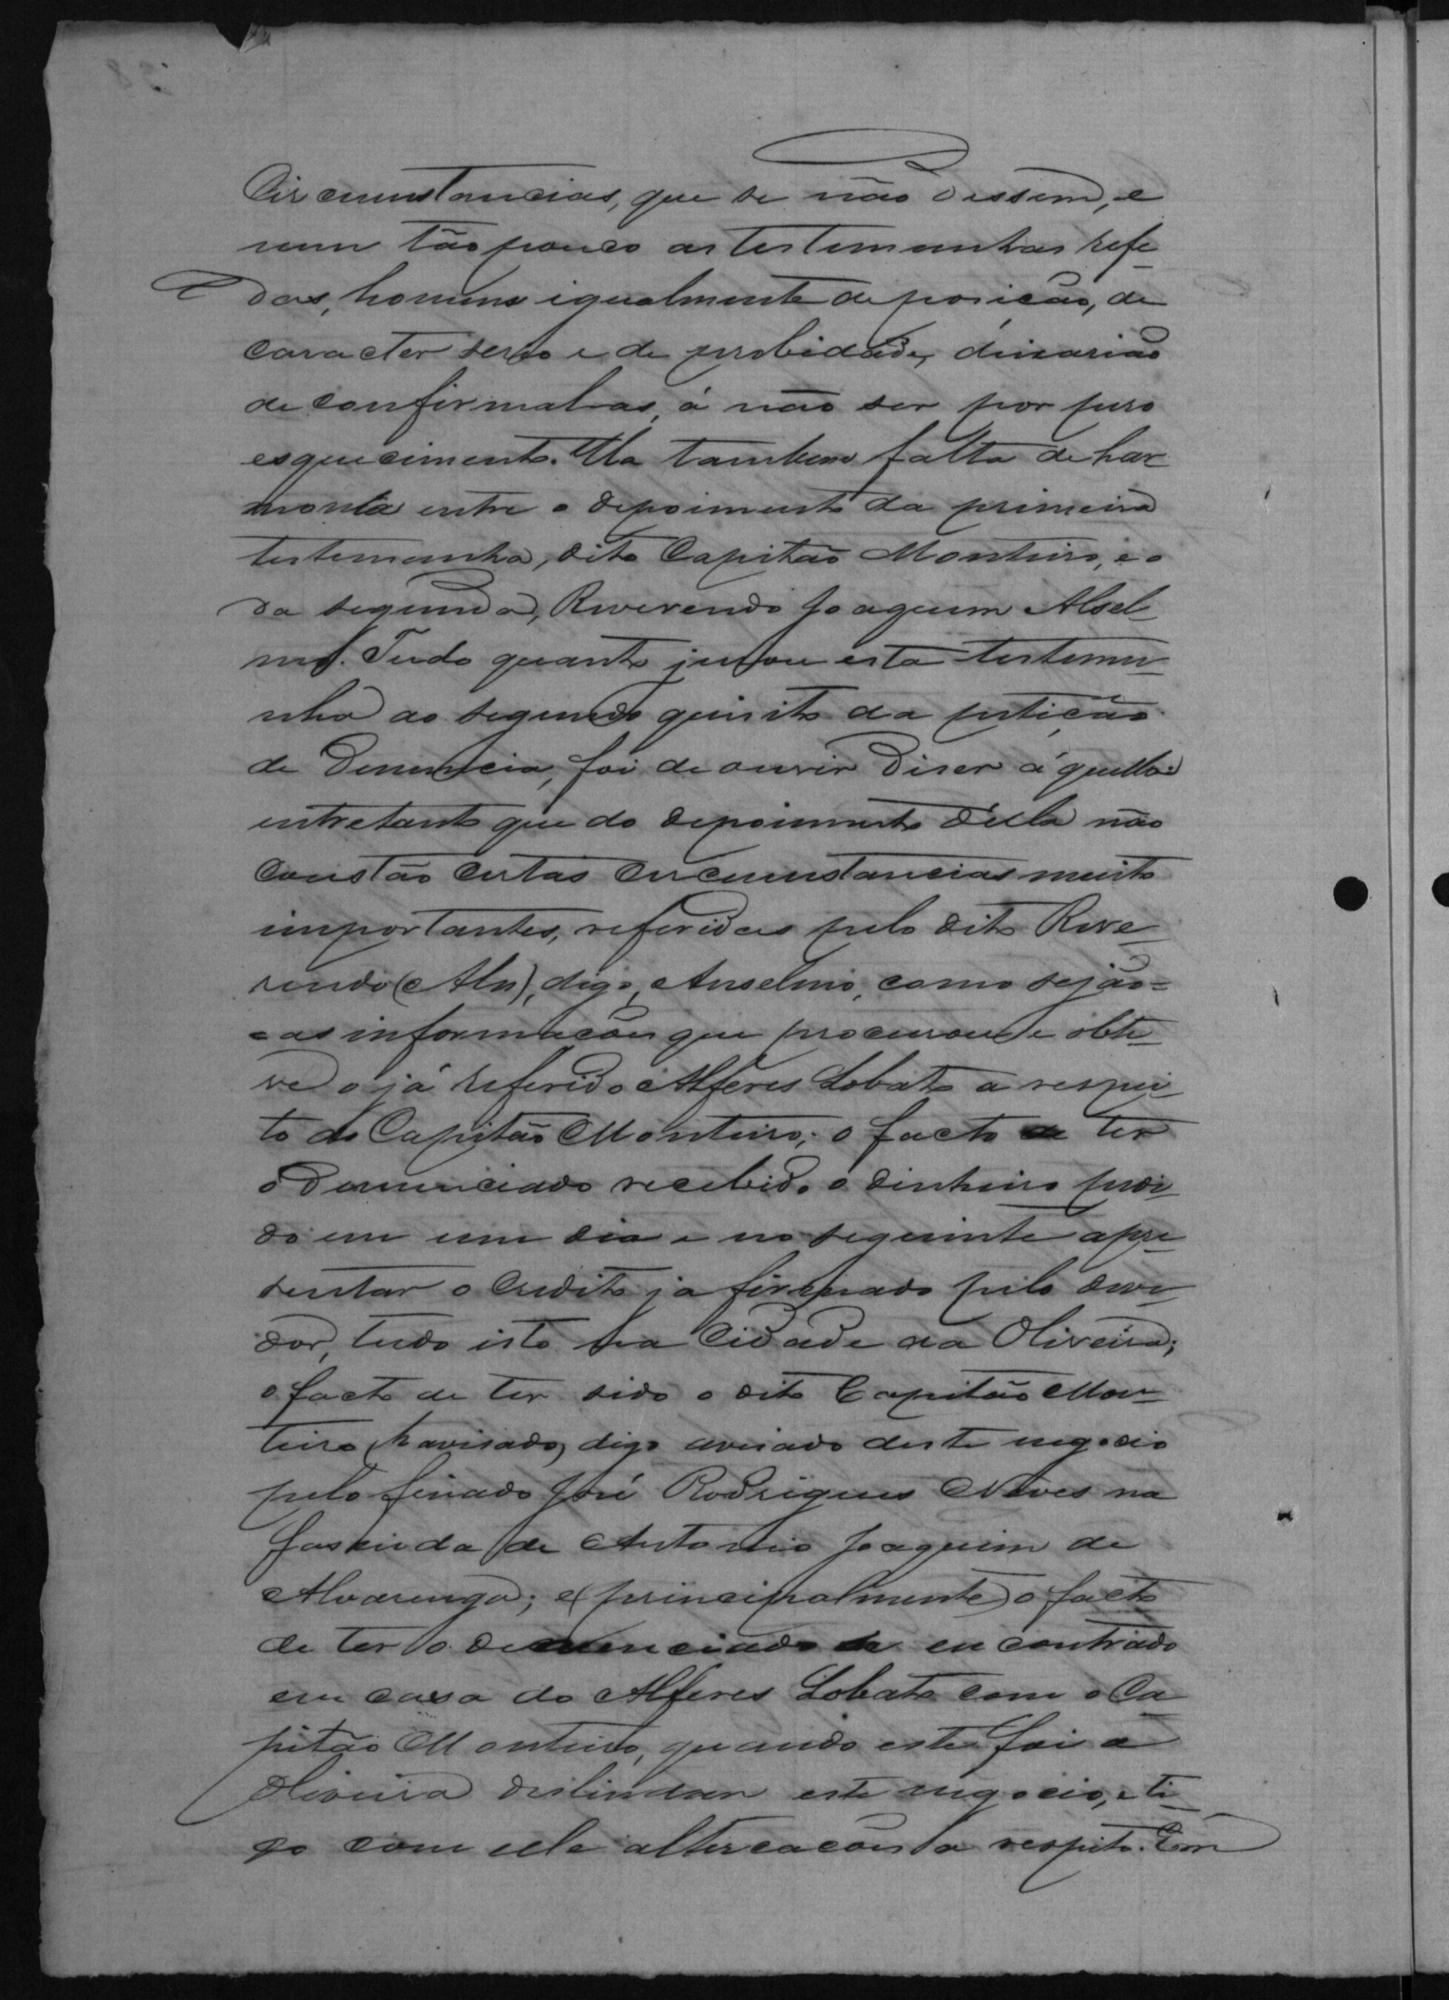 Circumstancias, que se não dessem, e
nem tão pouco as testemunhas refe-
das, homens igualmente de posição, de
caracter serio e de probidade, deixarião
de confirmal-as, á não ser por puro
esquecimento. Ha tambem falta de har-
monia entre o depoimento da primeira
testemunha, dito Capitão Monteiro, e o
da segunda, Reverendo Joaquim Alsel-
mo. Tudo quanto jurou esta testemu-
nha ao segundo quisito da petição
de Denuncia, foi de ouvir diser á quella:
entretanto que do depoimento d'ella não
constão certas circumstancias muito
importantes, referidas pelo dito Reve-
rendo (Aln), digo, Anselmo, como sejão =
= as informações que procurou e obte-
ve o já referido Alferes Lobato a respei-
to do Capitão Monteiro; o facto de ter
o Denunciado recebido o dinheiro pedi-
do em um dia e no seguinte apre-
sentar o credito já firmado pelo deve-
dor, tudo isto na Cidade da Oliveira;
o facto de ter sido o dito Capitão Mon-
teiro (havisado) digo avisado deste negocio
pelo finado José Rodrigues Neves na
fasenda de Antonio Joaquim de
Alvarenga; e (principalmente) o facto
de ter o denunciado se encontrado
em casa do Alferes Lobato com o Ca-
pitão Monteiro, quando este foi a
Oliveira deslindar este negocio, e ti-
do com elle altercações a respeito. Em